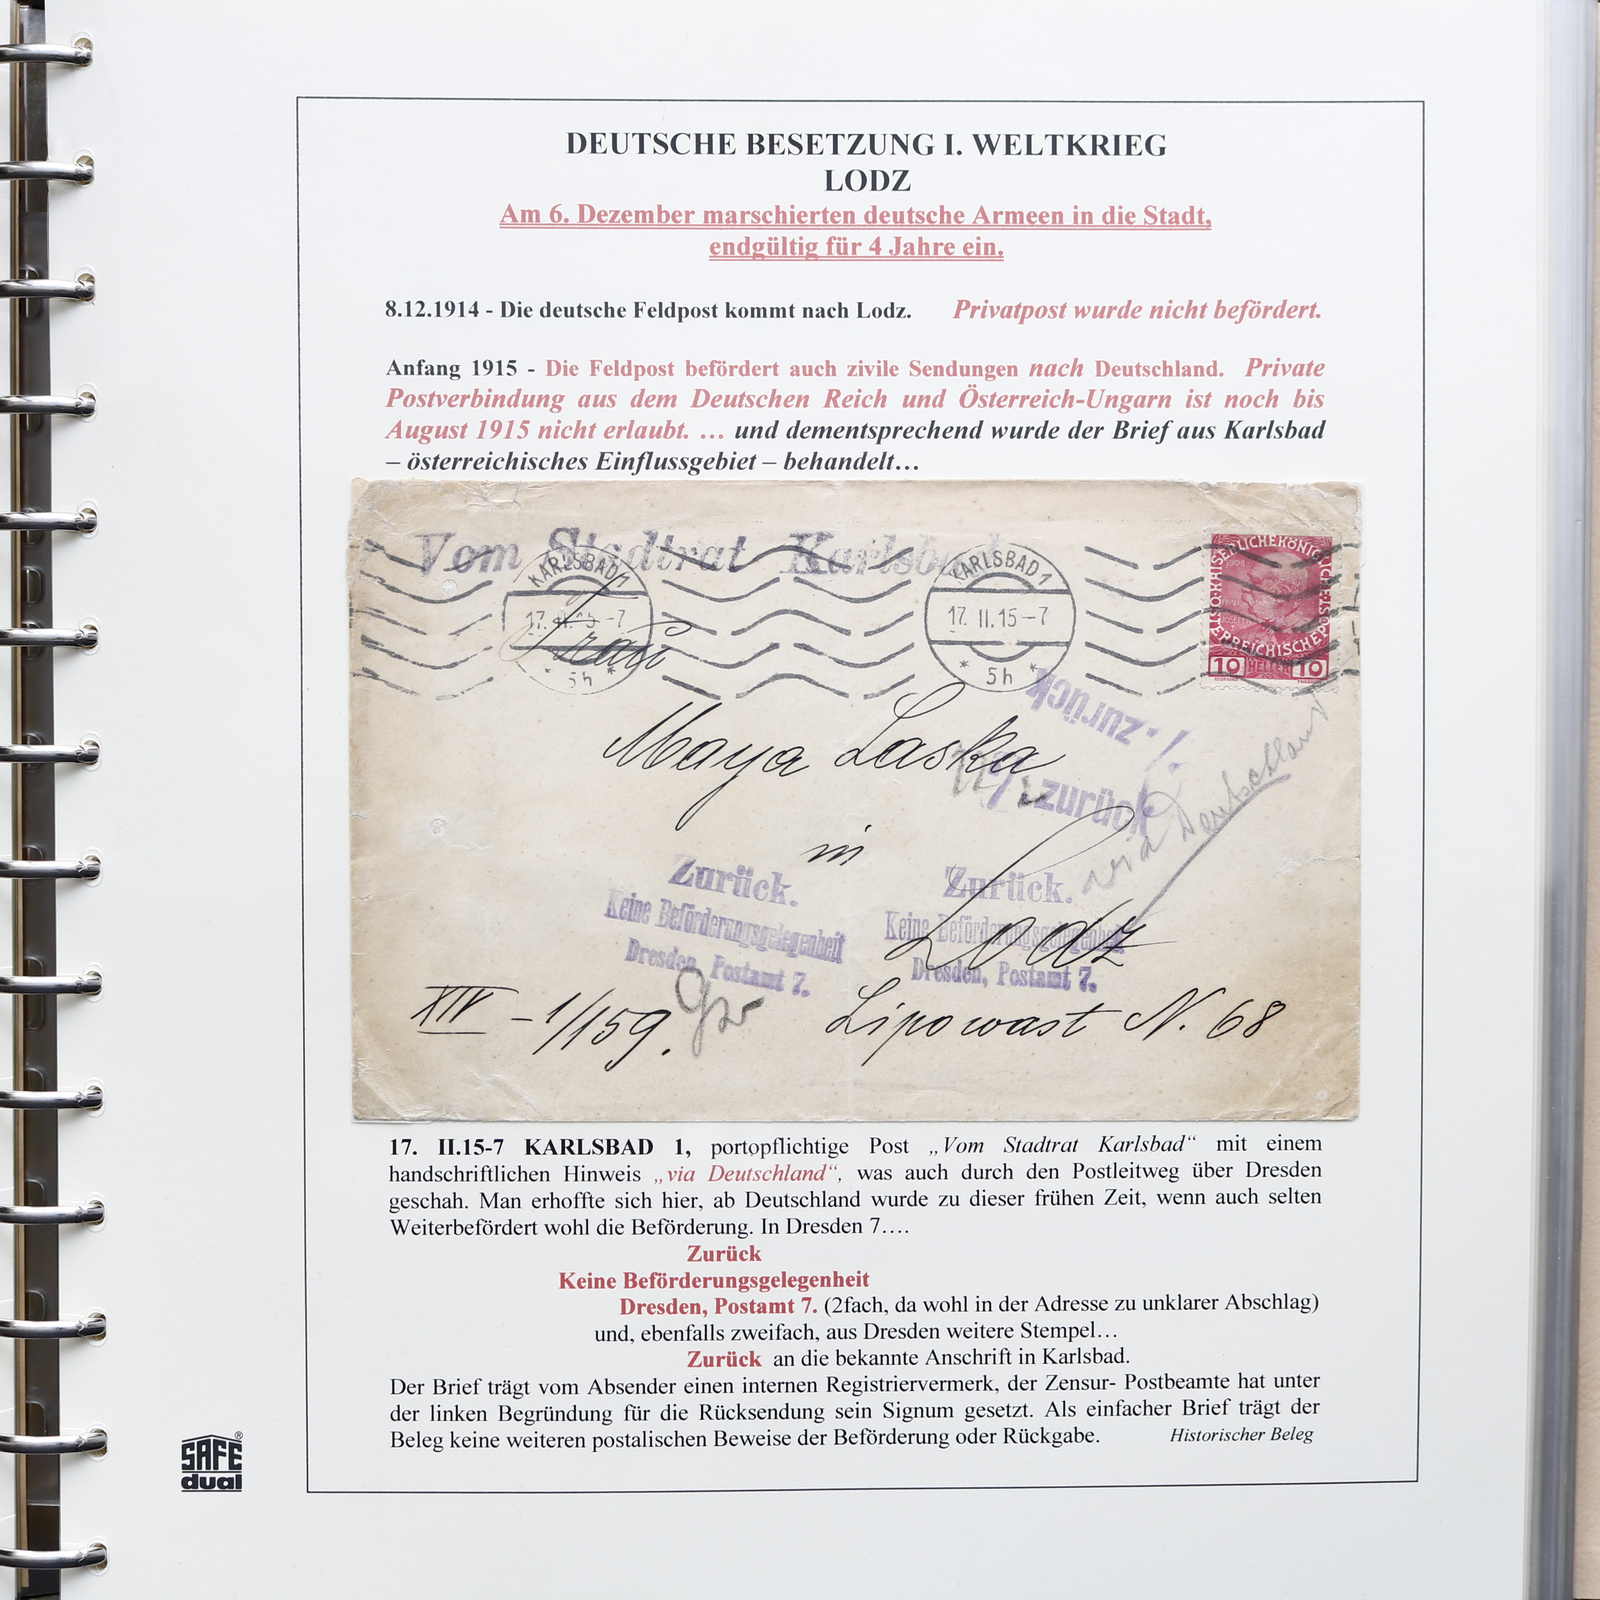 DEUTSCHE BESETZUNG I. WELTKRIEG
LODZ
Am 6. Dezember marschierten deutsche Armeen in die Stadt,
endgültig für 4 Jahre ein.
8.12.1914 - Die deutsche Feldpost kommt nach Lodz. Privatpost wurde nicht befördert.
Anfang 1915 - Die Feldpost befördert auch zivile Sendungen nach Deutschland. Private
Postverbindung aus dem Deutschen Reich und Österreich-Ungarn ist noch bis
August 1915 nicht erlaubt. … und dementsprechend wurde der Brief aus Karlsbad
– österreichisches Einflussgebiet – behandelt…
Vom Stadtrat Karlsbad
KARLSBAD 1
17. II. 15 -7
* 5h *
KARLSBAD 1
17. II. 15 -7
* 5h *
10 HELLER 10
Frau
Maya Laska
zurück.
zurück
via Deutschland
in
Lodz
Zurück.
Keine Beförderungsgelegenheit
Dresden, Postamt 7.
Zurück.
Keine Beförderungsgelegenheit
Dresden, Postamt 7.
XIV - 1/159.
Lipowast N. 68
17. II.15-7 KARLSBAD 1, portopflichtige Post „Vom Stadtrat Karlsbad“ mit einem
handschriftlichen Hinweis „via Deutschland“, was auch durch den Postleitweg über Dresden
geschah. Man erhoffte sich hier, ab Deutschland wurde zu dieser frühen Zeit, wenn auch selten
Weiterbefördert wohl die Beförderung. In Dresden 7….
Zurück
Keine Beförderungsgelegenheit
Dresden, Postamt 7. (2fach, da wohl in der Adresse zu unklarer Abschlag)
und, ebenfalls zweifach, aus Dresden weitere Stempel…
Zurück an die bekannte Anschrift in Karlsbad.
Der Brief trägt vom Absender einen internen Registriervermerk, der Zensur- Postbeamte hat unter
der linken Begründung für die Rücksendung sein Signum gesetzt. Als einfacher Brief trägt der
Beleg keine weiteren postalischen Beweise der Beförderung oder Rückgabe. Historischer Beleg
SAFE®
dual